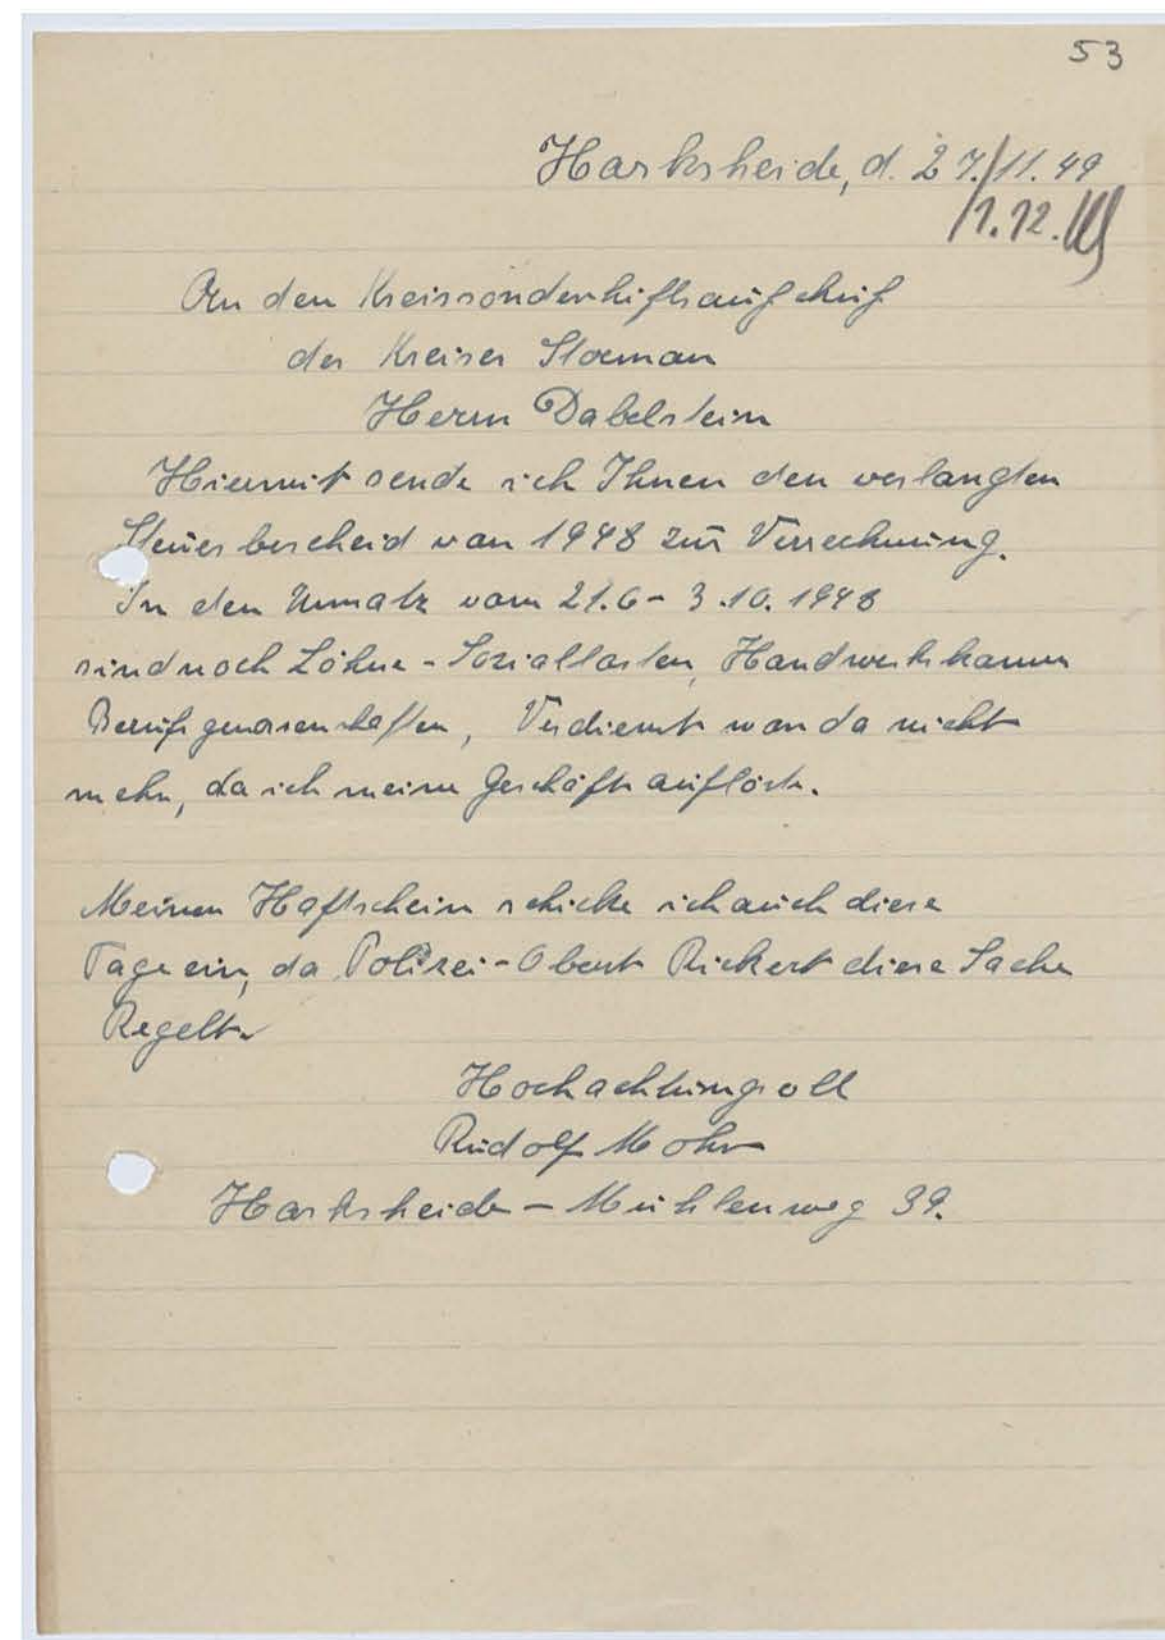 53
Harksheide, d. 27./11.49
1.12.
An den Kreissonderhilfsausschuß
des Kreises Storman
Herrn Dabelstein
Hiermit sende ich Ihnen den verlangten
Steuerbescheid von 1948 zur Verrechnung.
In den Umsatz vom 21.6 - 3.10.1948
sind noch Löhne - Soziallasten, Handwerkskammer
Berufsgenossenschaften, Verdienst war da nicht
mehr, da ich meine Geschäft auflöste.
Meinen Haftschein schicke ich auch diese
Tage ein, da Polizei-Oberst Rickert diese Sache
Regelt.
Hochachtungsvoll
Rudolf Mohr
Harksheide - Mühlenweg 39.